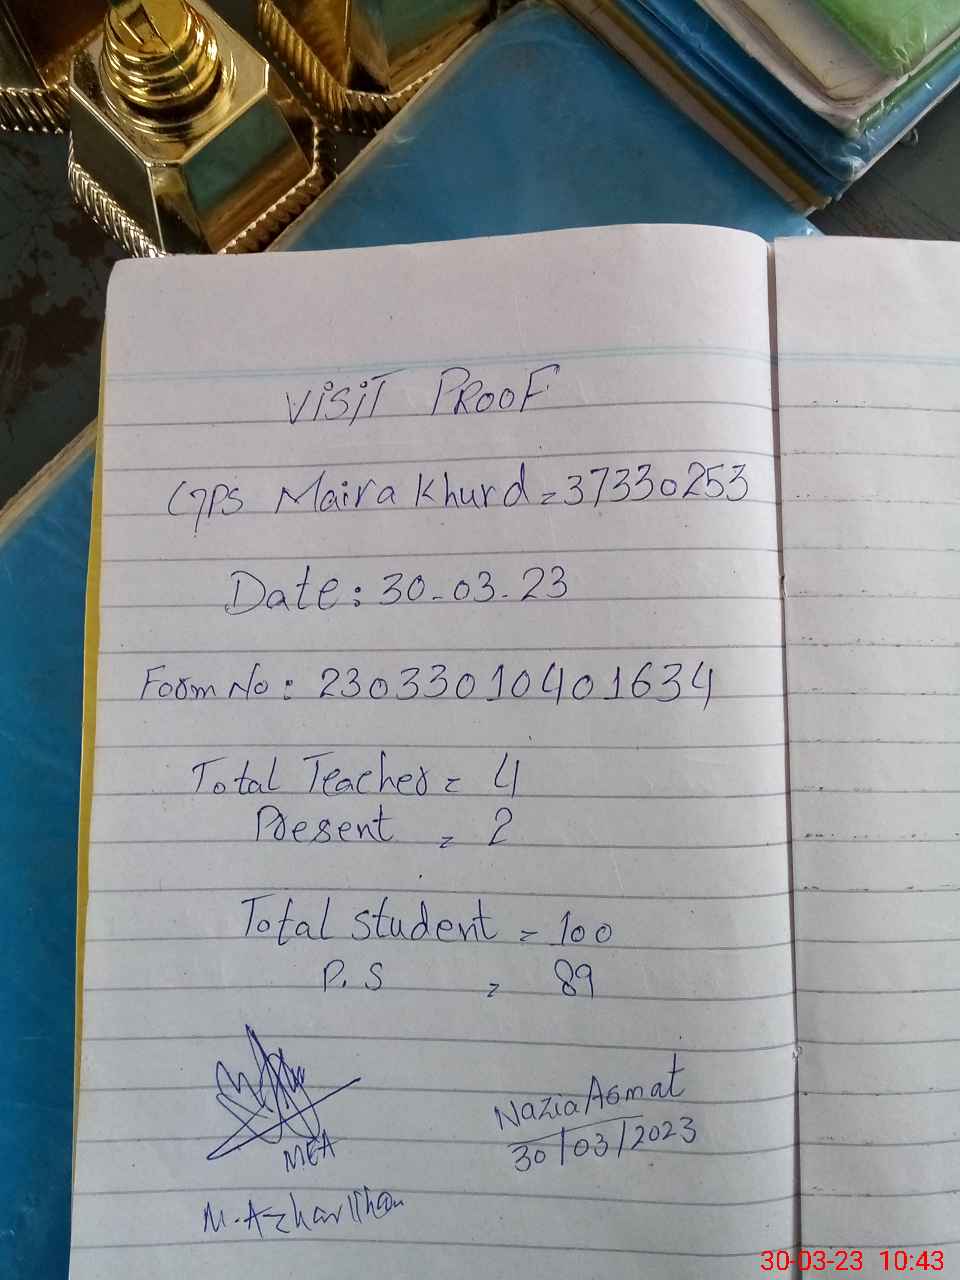 VISIT PROOF
GPS Maira Khurd = 37330253
Date: 30-03-23
Form No: 23033010401634
Total Teacher = 4
Present = 2
Total student = 100
P.S = 89
MEA
Nazia Asmat
30/03/2023
M. Azhar Khan
30-03-23 10:43